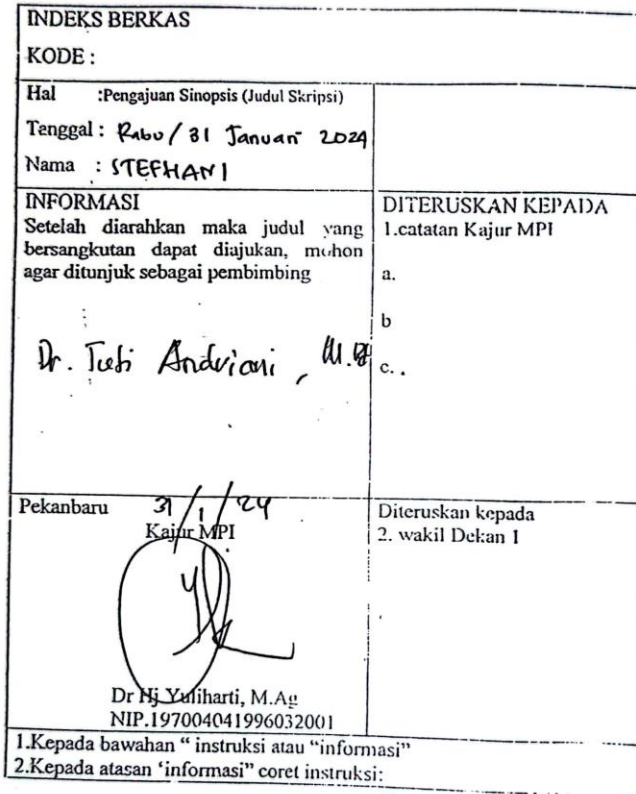 INDEKS BERKAS
KODE :
Hal :Pengajuan Sinopsis (Judul Skripsi)
Tanggal : Rabu / 31 Januari 2024
Nama : STEFHANI
INFORMASI
Setelah diarahkan maka judul yang
bersangkutan dapat diajukan, mohon
agar ditunjuk sebagai pembimbing
Dr. Tuti Andriani, M.Pd
DITERUSKAN KEPADA
1.catatan Kajur MPI
a.
b
c. .
Pekanbaru 31/1/24
Kajur MPI
Dr Hj Yuliharti, M.Ag
NIP.197004041996032001
Diteruskan kepada
2. wakil Dekan 1
1.Kepada bawahan “ instruksi atau “informasi”
2.Kepada atasan ‘informasi” coret instruksi: